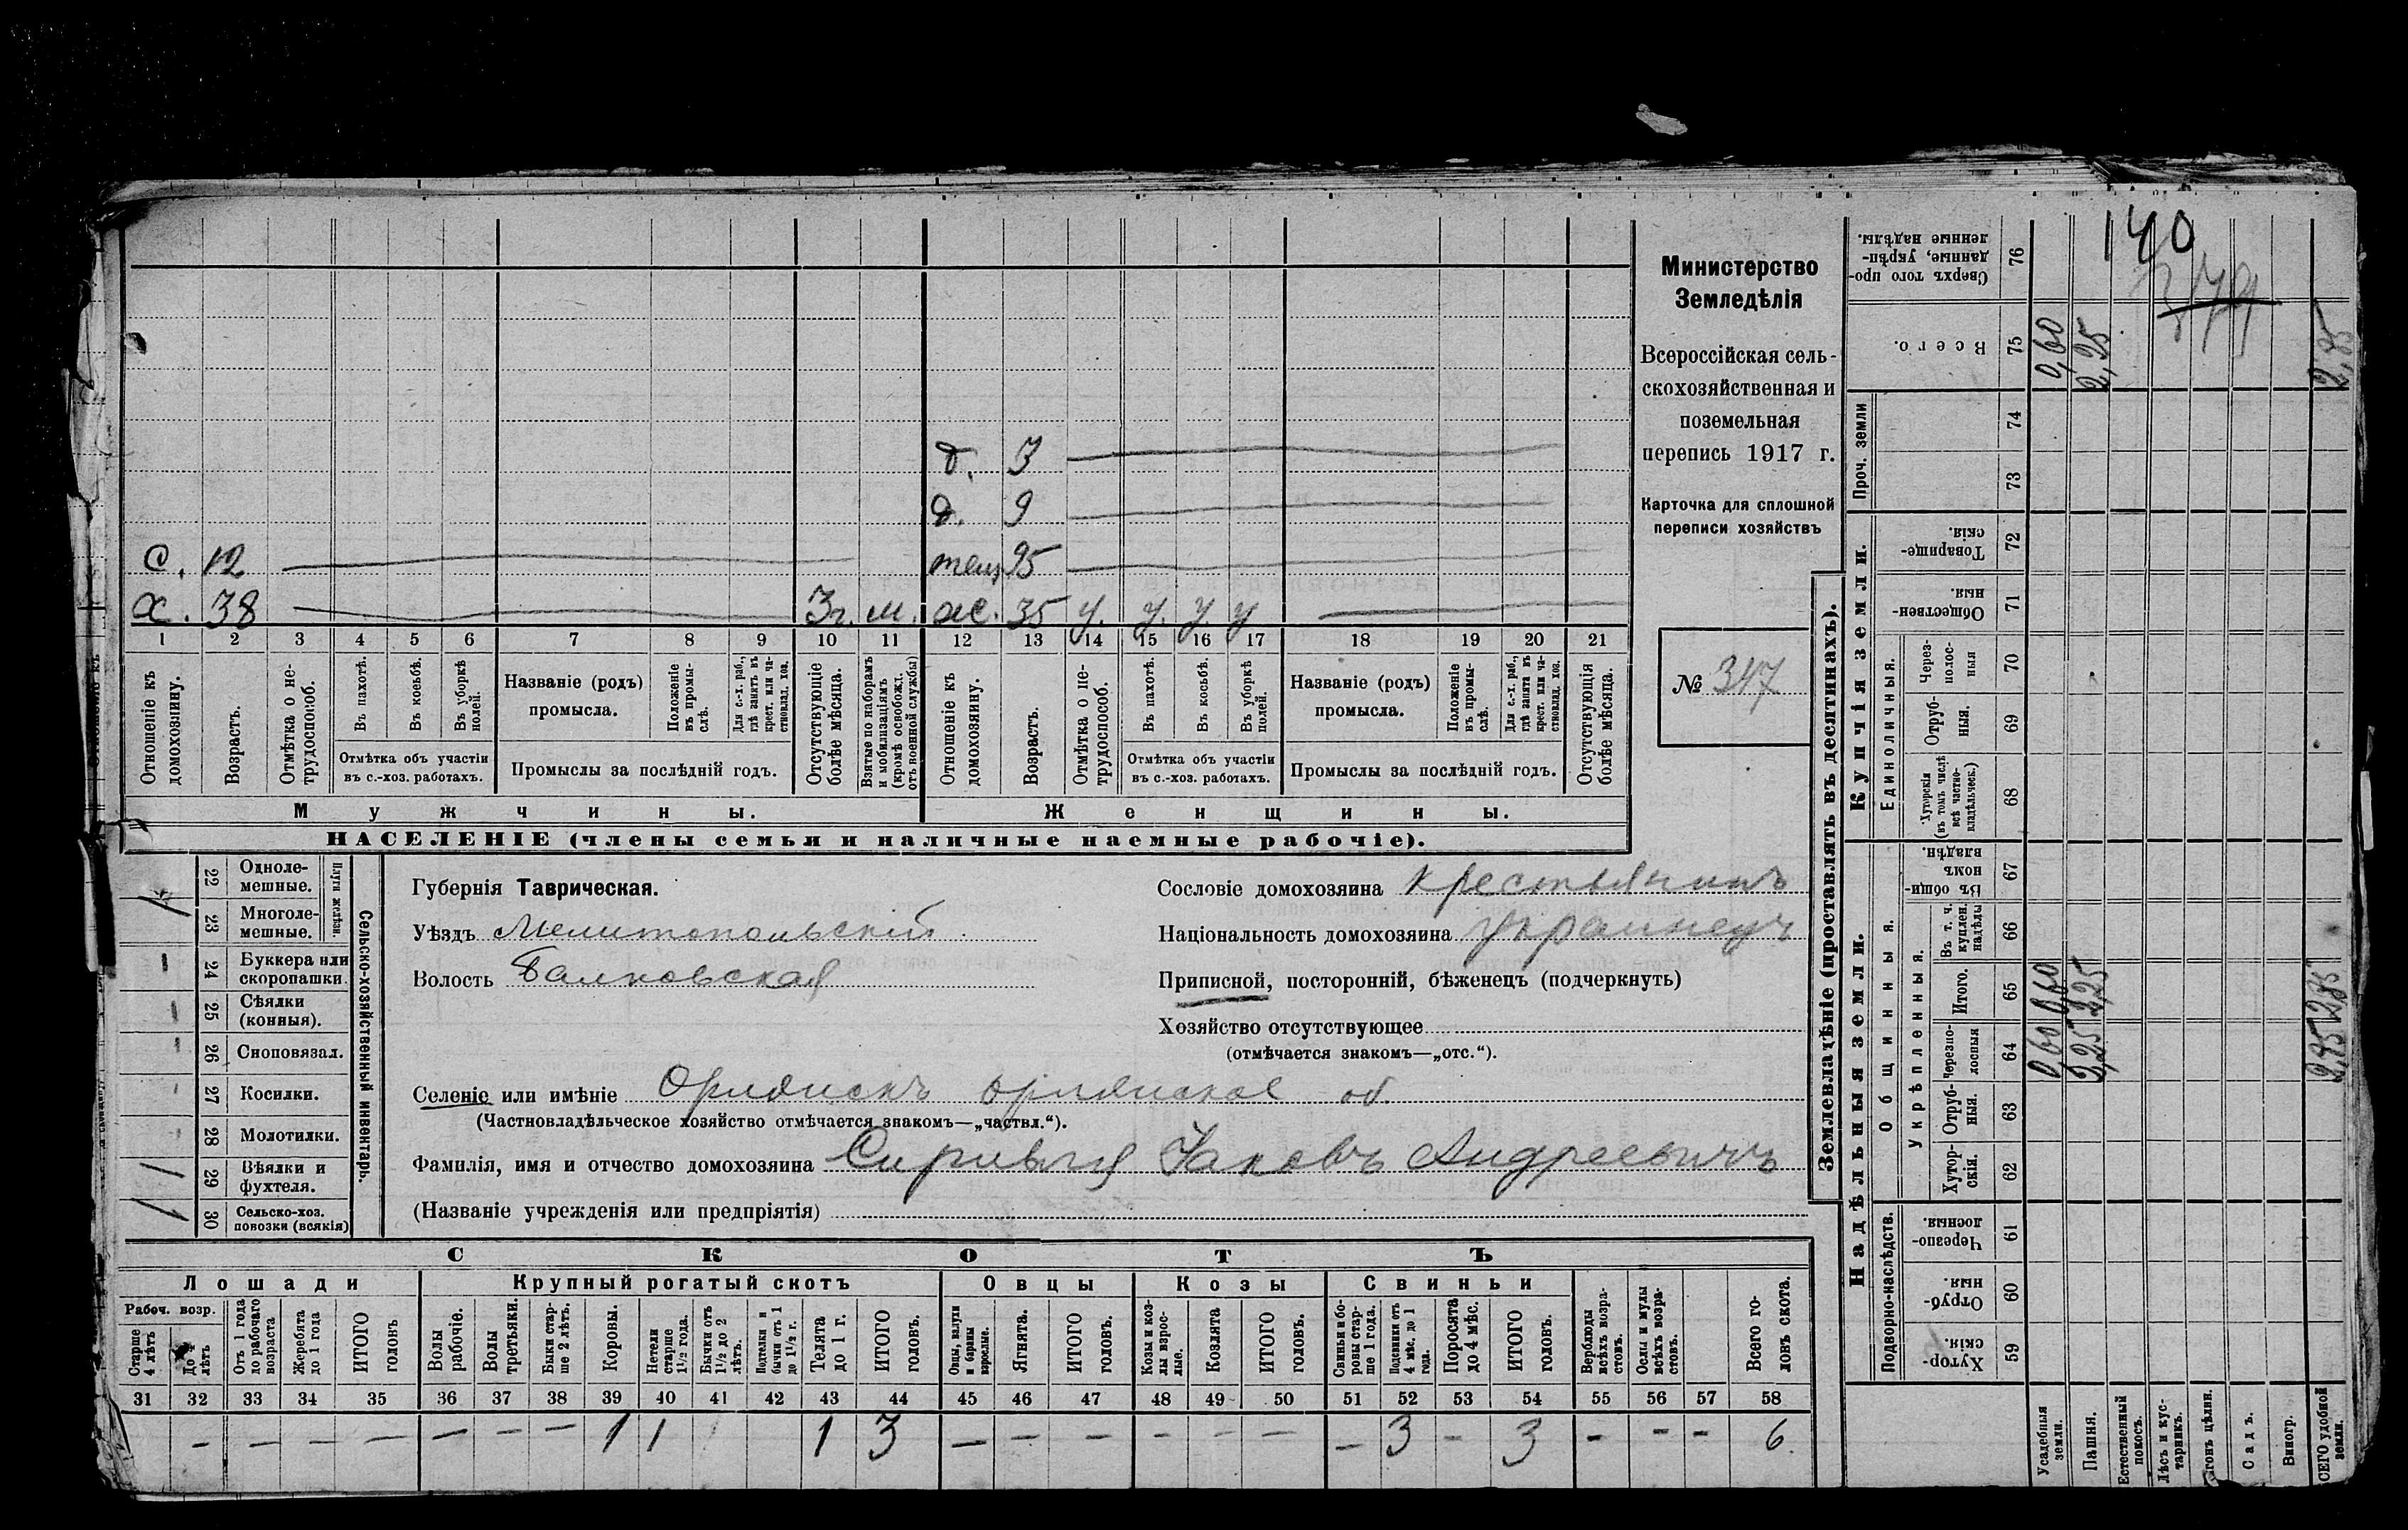 140
Министерство
Земледѣлія
Всероссійская сель-
скохозяйственная и
поземельная
перепись 1917 г.
Карточка для сплошной
переписи хозяйствъ
№ 347
д. 3
д. 9
с. 12
х. 38 3 г. м. ж. 35 у. у. у. у
1 2 3 4 5 6 7 8 9 10 11 12 13 14 15 16 17 18 19 20 21
Отношеніе къ домохозяину.
Возрастъ.
Отмѣтка о не-трудоспособ.
Въ пахотѣ.
Въ косьбѣ.
Въ уборкѣ полей.
Отмѣтка объ участіи
въ с.-хоз. работахъ.
Названіе (родъ)
промысла.
Положеніе въ промы-слѣ.
Для с.-х. раб., гдѣ занятъ въ крест. или ча-стновлад. хоз.
Промыслы за послѣдній годъ.
Отсутствующіе болѣе мѣсяца.
Взятые по наборамъ и мобилизаціямъ (кромѣ освобожд. отъ военной службы)
Отношеніе къ домохозяину.
Возрастъ.
Отмѣтка о не-трудоспособ.
Въ пахотѣ.
Въ косьбѣ.
Въ уборкѣ полей.
Отмѣтка объ участіи
въ с.-хоз. работахъ.
Названіе (родъ)
промысла.
Положеніе въ промы-слѣ.
Для с.-х. раб., гдѣ занята въ крест. или ча-стновлад. хоз.
Промыслы за послѣдній годъ.
Отсутствующія болѣе мѣсяца.
Мужчины. Женщины.
НАСЕЛЕНІЕ (члены семьи и наличные наемные рабочіе).
22 Одноле-мешные.
23 Многоле-мешные.
Плуги желѣзн.
24 Буккера или скоропашки.
25 Сѣялки (конныя).
26 Сноповязал.
27 Косилки.
28 Молотилки.
29 Вѣялки и фухтеля.
30 Сельско-хоз. повозки (всякія)
Сельско-хозяйственный инвентарь.
Губернія Таврическая.
Уѣздъ Мелитопольскій
Волость Балковская
Сословіе домохозяина крестьянинъ
Національность домохозяина украинецъ
Приписной, посторонній, бѣженецъ (подчеркнуть)
Хозяйство отсутствующее
(отмѣчается знакомъ—„отс.“).
Селеніе или имѣніе Орлянскъ орлянское об.
(Частновладѣльческое хозяйство отмѣчается знакомъ—„частвл.“).
Фамилія, имя и отчество домохозяина Яковъ Андреевичъ
(Названіе учрежденія или предпріятія)
СКОТЪ
Лошади Крупный рогатый скотъ Овцы Козы Свиньи
Рабоч. возр.
Старше 4 лѣтъ
До 4 лѣтъ
Отъ 1 года до рабочаго возраста
Жеребята до 1 года
ИТОГО головъ
Волы рабочіе.
Волы третьяки.
Быки стар-ше 2 лѣтъ.
Коровы.
Нетели старше 1½ года.
Бычки отъ 1½ до 2 лѣтъ.
Подтелки и бычки отъ 1 до 1½ г.
Телята до 1 г.
ИТОГО головъ.
Овцы, валухи и бараны взрослые.
Ягнята.
ИТОГО головъ.
Козы и коз-лы взрос-лые.
Козлята
ИТОГО головъ.
Свиньи и бо-ровы стар-ше 1 года.
Подсвинки отъ 4 мѣс. до 1 года.
Поросята до 4 мѣс.
ИТОГО головъ.
Верблюды всѣхъ возра-стовъ.
Ослы и мулы всѣхъ возра-стовъ.
Всего го-ловъ скота.
31 32 33 34 35 36 37 38 39 40 41 42 43 44 45 46 47 48 49 50 51 52 53 54 55 56 57 58
— — — — — — — 1 1 1 3 — — — — — — — 3 — 3 — — — 6.
Землевладѣніе (проставлять въ десятинахъ).
Надѣльныя земли. Купчія земли.
Подворно-наслѣдств.
Общинныя.
Укрѣпленныя.
Единоличныя.
Проч. земли
Хутор-скія. 59
Отруб-ныя. 60
Черезпо-лосныя. 61
Хутор-скія. 62
Отруб-ныя. 63
Черезпо-лосныя 64
Итого. 65
Въ т. ч. куплен. надѣлы 66
Въ общин-номъ владѣн. 67
Хуторскія (въ томъ числѣ всѣ частно-владѣльческ.) 68
Отруб-ныя. 69
Через-полос-ныя 70
Обществен-ныя. 71
Товарище-скія. 72
73
74
Всего. 75
Сверхъ того про-данные, укрѣп-ленные надѣлы. 76
Усадебныя земли. 0,60 0,60 0,60
Пашня. 2,25 2,25 2,25
Естественный покосъ.
Лѣсъ и кус-тарникъ.
Садъ.
Виногр.
удобной земли. 2,85 2,85 2,85